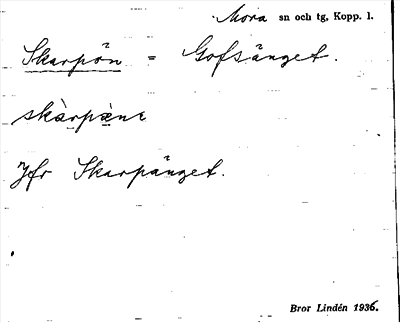 Mora sn och tg, Kopp. l.
Skarpön = Gofsänget.
skàrpène
Jfr Skarpänget.
Bror Lindén 1936.